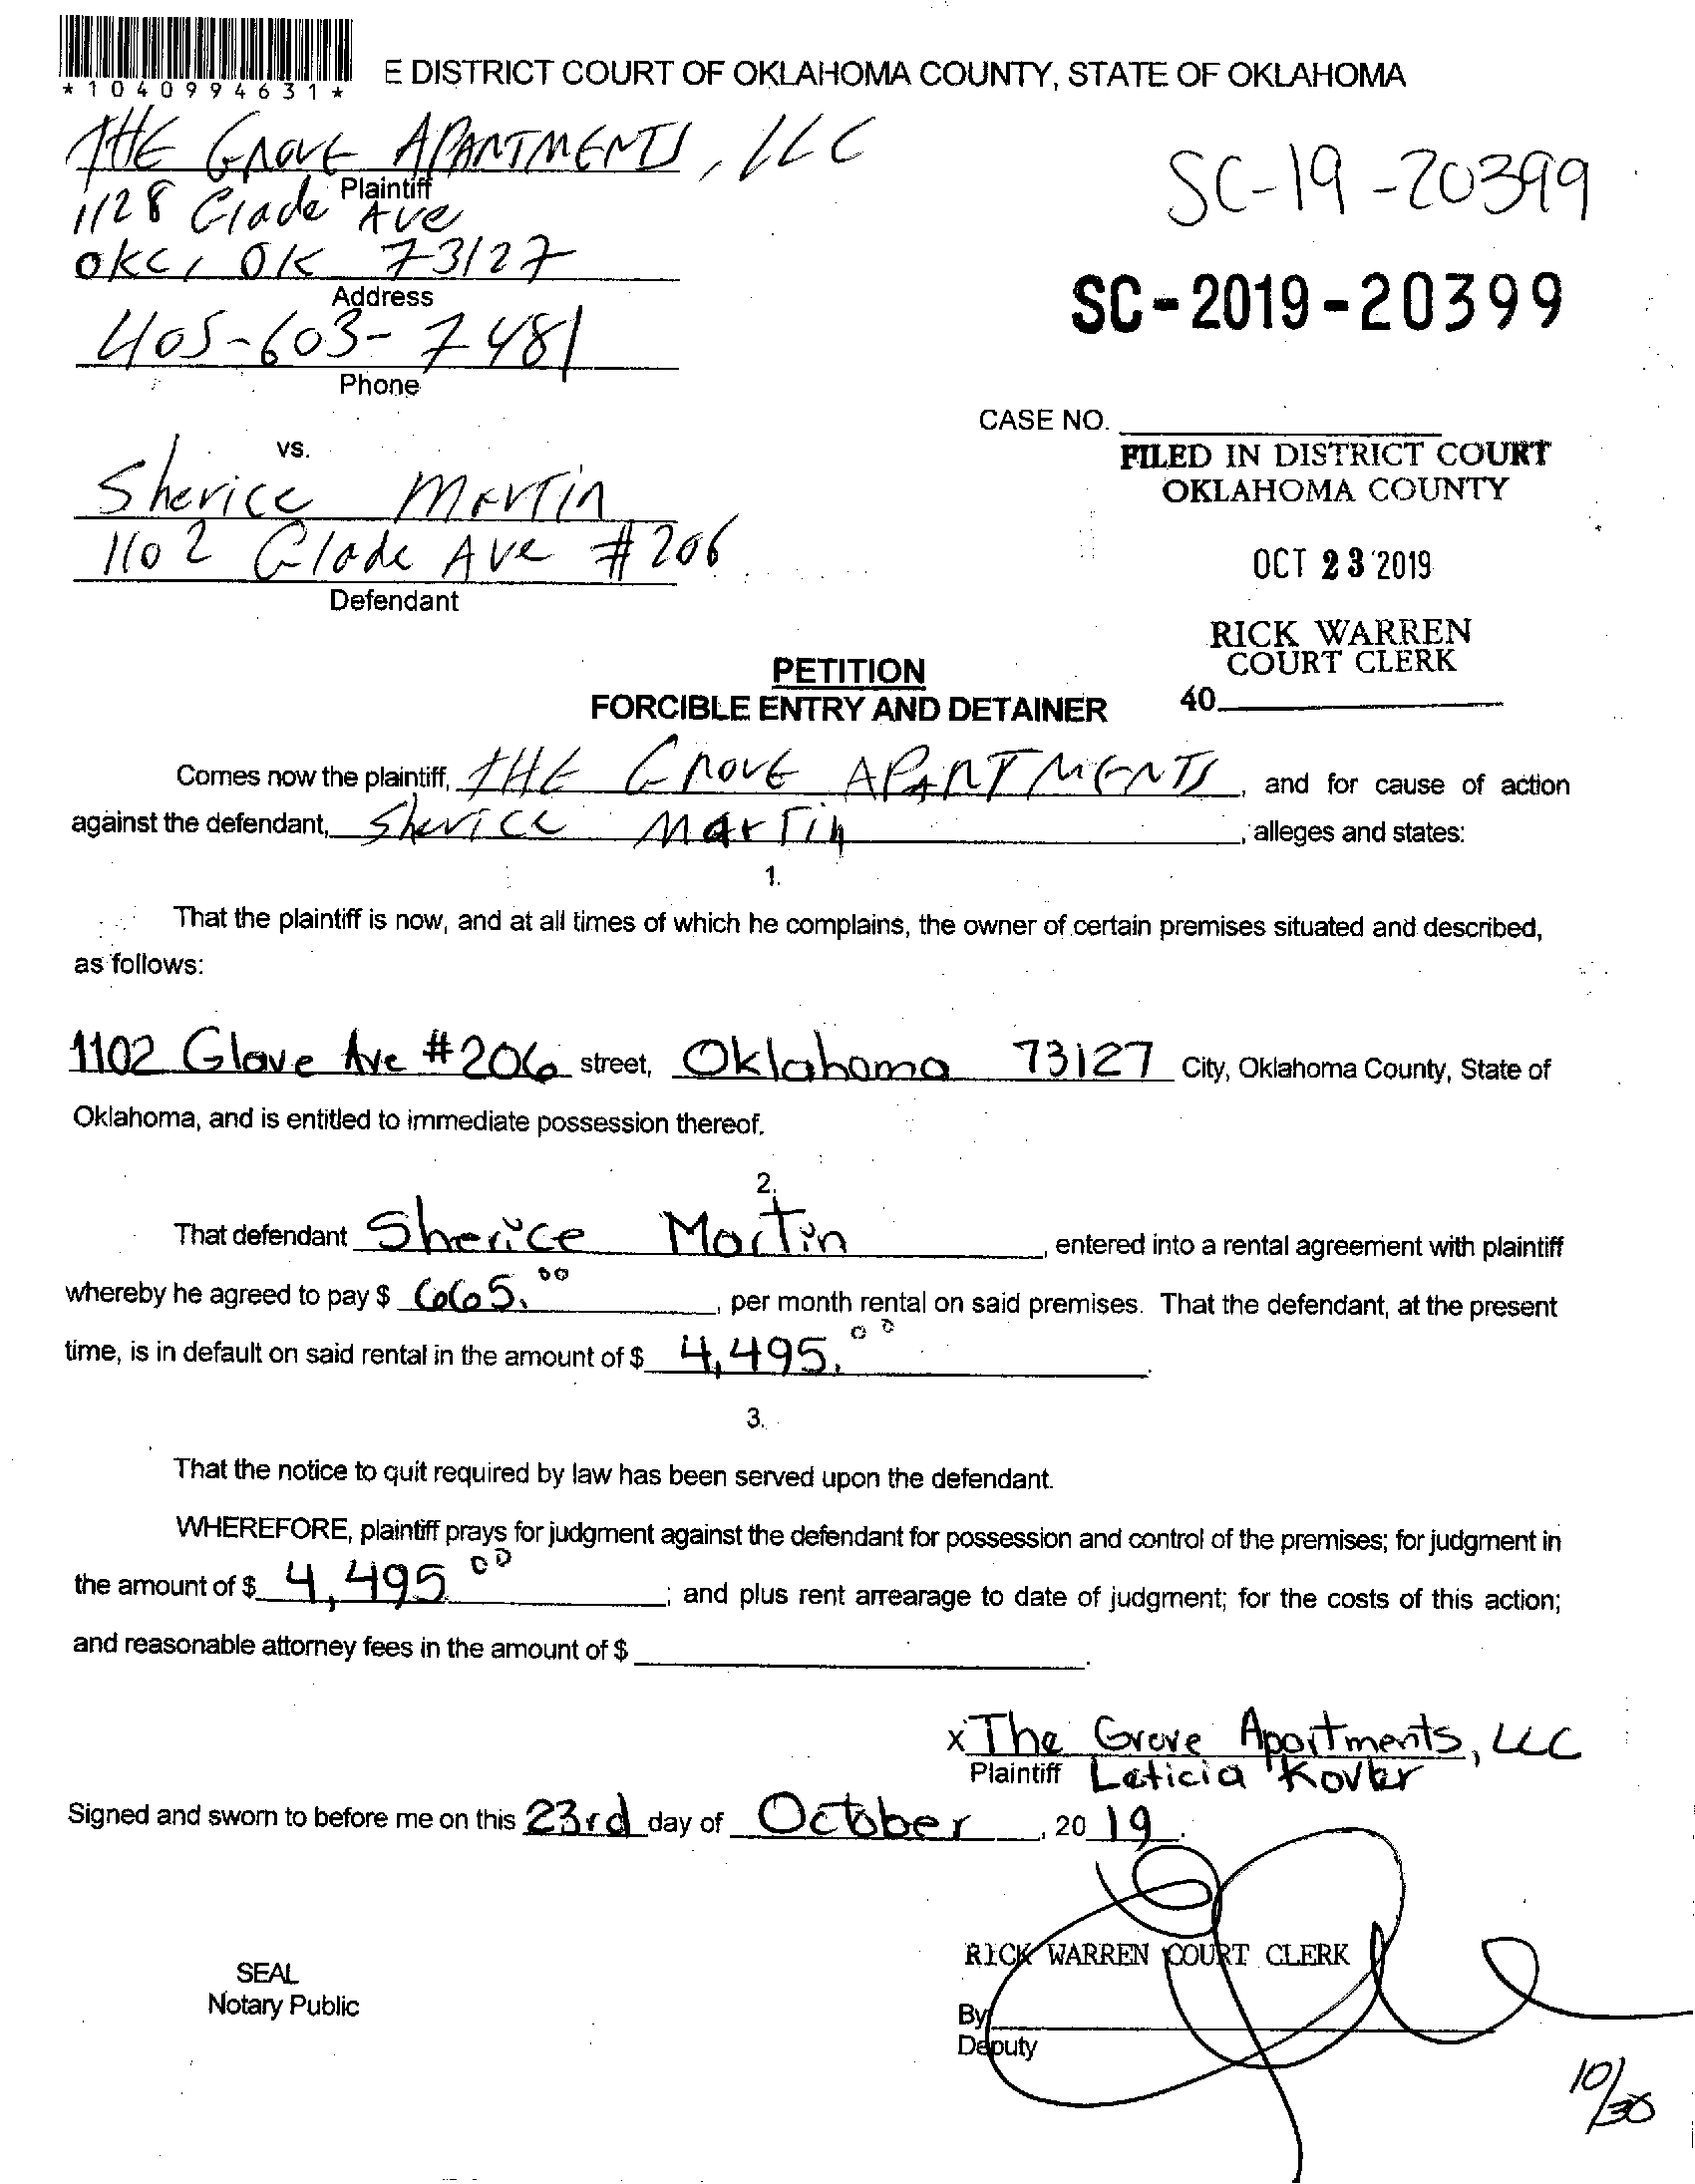 *1040994631*
E DISTRICT COURT OF OKLAHOMA COUNTY, STATE OF OKLAHOMA
THE GROVE APARTMENTS, LLC
Plaintiff
1128 Glade Ave
OKC, OK 73127
Address
405-603-7481
Phone
SC-19-20399
SC-2019-20399
CASE NO.
vs.
FILED IN DISTRICT COURT
OKLAHOMA COUNTY
Sherice Martin
1102 Glade Ave #206
Defendant
OCT 23 2019
RICK WARREN
COURT CLERK
40
PETITION
FORCIBLE ENTRY AND DETAINER
Comes now the plaintiff, THE GROVE APARTMENTS, and for cause of action
against the defendant, Sherice Martin, alleges and states:
1.
That the plaintiff is now, and at all times of which he complains, the owner of certain premises situated and described,
as follows:
1102 Glave Ave #206 street, Oklahoma 73127 City, Oklahoma County, State of
Oklahoma, and is entitled to immediate possession thereof.
2.
That defendant Sherice Martin, entered into a rental agreement with plaintiff
whereby he agreed to pay $ 665.00, per month rental on said premises. That the defendant, at the present
time, is in default on said rental in the amount of $ 4,495.00.
3.
That the notice to quit required by law has been served upon the defendant.
WHEREFORE, plaintiff prays for judgment against the defendant for possession and control of the premises; for judgment in
the amount of $ 4,495 00; and plus rent arrearage to date of judgment; for the costs of this action;
and reasonable attorney fees in the amount of $ .
x The Grove Apartments, LLC
Plaintiff Leticia
Signed and sworn to before me on this 23rd day of October, 20 19.
RICK WARREN COURT CLERK
SEAL
Notary Public
By
Deputy
10/30